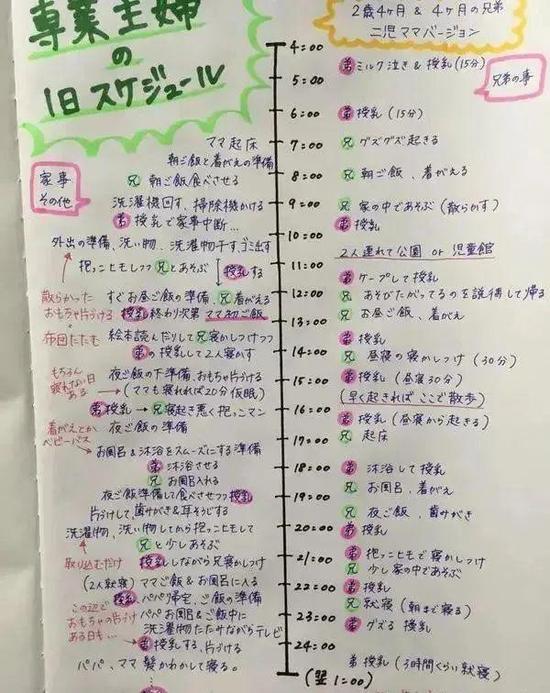 専業主婦
の
1日スケジュール
2歳4ヶ月 & 4ヶ月の兄弟
二児ママバージョン
家事
その他
ママ起床
朝ご飯と着がえの準備
兄 朝ご飯食べさせる
洗濯機回す、掃除機かける
弟 授乳で家事中断…
外出の準備、洗い物、洗濯物干す、ゴミ出す
抱っこヒモしつつ 兄とあそぶ
授乳する
散らかった
おもちゃ片づける
すぐお昼ご飯の準備、兄 着がえる
授乳終わり次第 ママ初ご飯
布団たたむ
絵本読んだりして兄寝かしつけつつ
弟の授乳して2人寝かす
もちろん
寝れない日
ある
夜ご飯の下準備、おもちゃ片づける
(ママも寝れれば20分仮眠)
弟授乳→兄寝起き悪く抱っこマン
着がえとか
ベビーバス
夜ご飯の準備
お風呂&沐浴をスムーズにする準備
弟 沐浴させる
兄 お風呂入れる
夜ご飯準備して食べさせつつ授乳
片づけして、歯みがき&耳そうじする
洗濯物、洗い物してから抱っこヒモして
兄と少しあそぶ
取り込むだけ
授乳しながら兄寝かしつけ
(2人就寝) ママご飯&お風呂に入る
授乳、パパ帰宅、ご飯の準備
この辺で
おもちゃの片づけ
ある日も…
パパお風呂&ご飯中に
洗濯物たたみながらテレビ
弟 授乳する、片づける
パパ、ママ 髪かわかして寝る。
4:00
5:00
6:00
7:00
8:00
9:00
10:00
11:00
12:00
13:00
14:00
15:00
16:00
17:00
18:00
19:00
20:00
21:00
22:00
23:00
24:00
(翌1:00)
兄弟の事
弟 ミルク泣き & 授乳(15分)
弟 授乳(15分)
兄 グズグズ起きる
兄 朝ご飯、着がえる
兄 家の中であそぶ(散らかす)
弟 授乳
2人連れて公園 or 児童館
弟 ケープして授乳
兄 あそびたがってるのを説得して帰る
兄 お昼ご飯、着がえ
弟 授乳
兄 昼寝の寝かしつけ(30分)
弟 授乳(昼寝30分)
(早く起きれば ここで散歩)
弟 授乳(昼寝から起きる)
兄 起床
弟 沐浴して授乳
兄 お風呂、着がえ
兄 夜ご飯、歯みがき
弟 授乳
弟 抱っこヒモで寝かしつけ
兄 少し家の中であそぶ
弟 授乳
兄 就寝(朝まで寝る)
弟 グズる 授乳
弟 授乳(3時間くらい就寝)